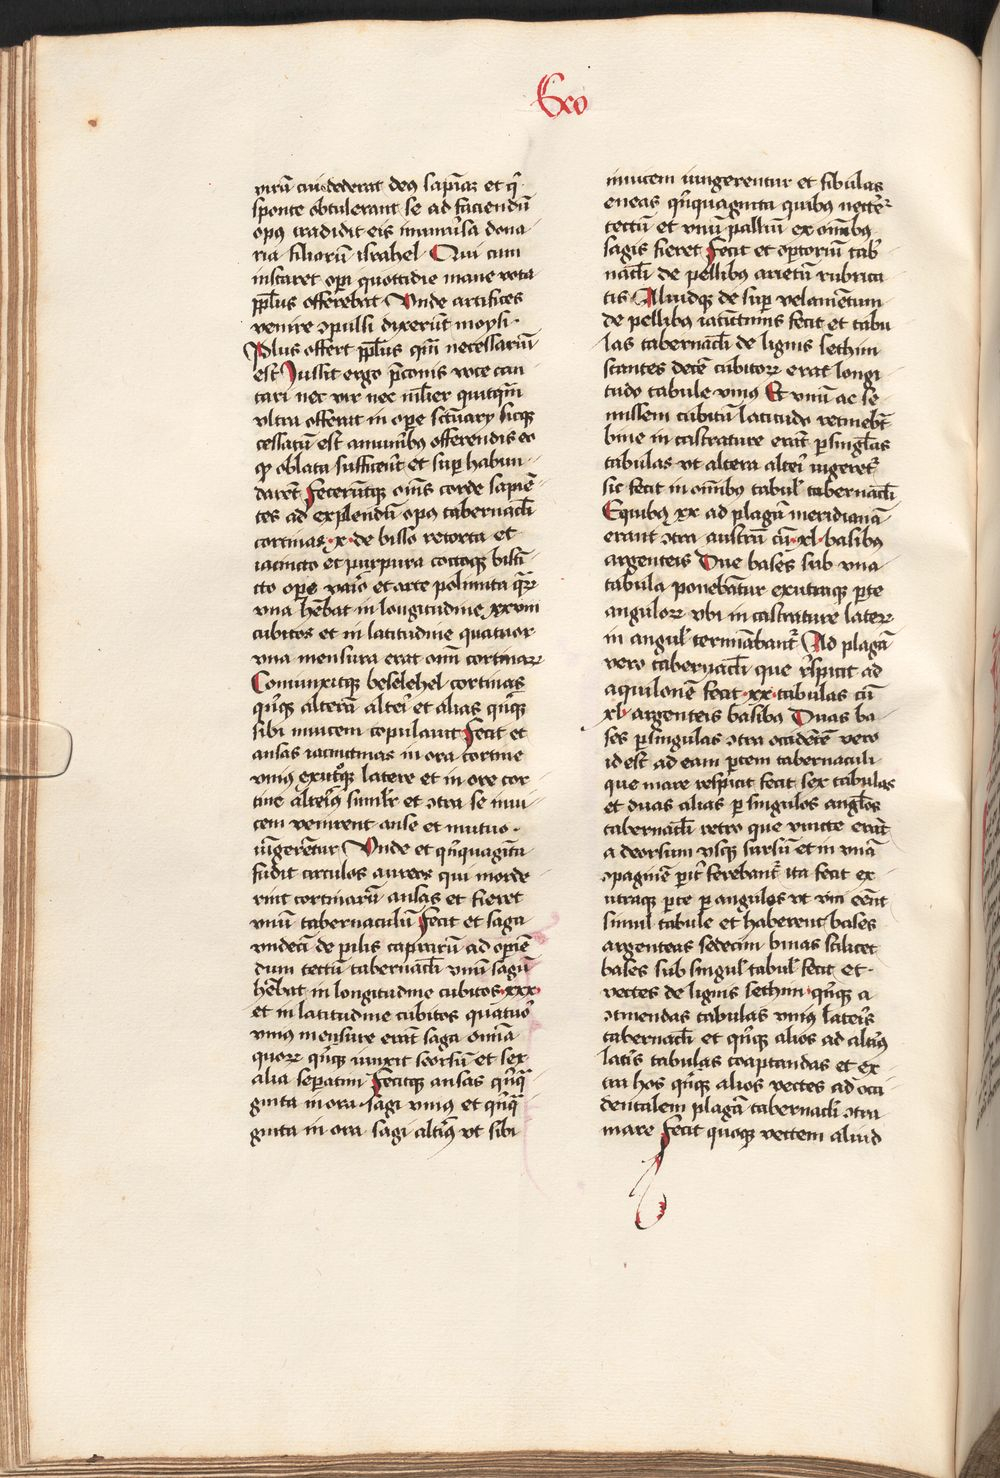 Exo
virū cui dederat deus sapiāȝ et qͥ
sponte obtulerant se ad faciendū
opꝰ tradidit eis inuniūsa dona
ria filiorū israhel Qui cum
instaret oꝑi quottidie mane vota
ppl̄us offerebat Unde artifices
venire ↄpulsi dixerūt moysi ·
Plus offert ppl̄us qm̄ necessariū
est Jussit ergo p̄conis voce can
tari nec vir nec ml̄ier quitq̄m
vltra offerat in oꝑe sctūary sicqꝫ
cessatū est amunībꝰ offerendis eo
qꝫ oblata sufficerūt et suꝑ habun
darēt Fecerūtqꝫ om̄s corde sapiē
tes ad explendū opꝰ tabernacl̄i
cortinas · x · de bisso retorta et
iacincto et purpura coccoqꝫ bistī
cto oꝑe vaīo et arte polimita qͣꝝ
vna hēbat in longitudine xxviii
cubitos et in latitudine quatuor
vna mensura erat oīm cortinaꝝ
Coniunxitqꝫ beselehel cortinas
qn̄qꝫ alterā alteri et alias qn̄qꝫ
sibi inuicem copulauit Fecit et
ansas iacinctinas in ora cortine
vnius exutͦqꝫ latere et in ore cor
tine alterīꝰ simil̄r et ↄtra se inui
cem venirent anse et mutuo ·
iūgerētur Unde et qn̄quagīta
fudit circulos aureos qui morde
rint cortinarū ansas et fieret
vnū tabernaculū Fecit et saga
vndecī de pilis caprarū ad oꝑiē
dum tectū tabernacl̄i vnū sagū
hēbat in longitudine cubitos · xxx ·
et in latitudine cubitos quatuoͬ
vnius mensure erāt saga omīa
quoꝝ qn̄qꝫ iunxit seorsū et sex
alia seꝑatim Fecitqꝫ ansas qn̄qͣ
ginta in ora sagi vnius et qn̄qͣ
ginta in ora sagi altiꝰ vt sibi
inuicem iungerentur et fibulas
eneas qn̄quaginta quibꝰ nectēꝛ
tectū et vnū palliū ex om̄ibꝰ
sagis fieret Fecit et oꝑtoriū tab̄
nacl̄i de pellibꝰ arietū rubrica
tis Aliudqꝫ de suꝑ velamētum
de pellibꝰ iacinctīnis fecit et tabu
las tabernacl̄i de lignis sethim
stantes decē cubitoꝝ erat longi
tudo tabule vnius Et vnū ac se
missem cubitū latitudo retinebt̄
bine in castrature erāt ꝑ singl̄as
tabulas vt altera alteri iūgeretͬ
sic fecit in om̄ibꝰ tabul̄ tabernacl̄i
Equibꝰ xx ad plagā meridianā
erant ↄtra austrū cū · xl · basibꝰ
argenteis Due bases sub vna
tabula ponebātur exutraqꝫ ꝑte
anguloꝝ vbi in castrature lateꝝ
in angul̄ terminābantͬ Ad plagā
vero tabernacl̄i que r̄spicit ad
aquilonē fecit · xx · tabulas cū
xl · argenteis basibꝰ Duas ba
ses ꝑ singulas ↄtra occidētē vero
id est ad eam ꝑtem tabernaculi
que mare respicit fecit sex tabulas
et duas alias ꝑ singulos angl̄os
tabernacl̄i retro que vincte erāt
a deorsum vsqꝫ sursū et in vnā
ↄpaginē ꝑitͬ ferebantͬ ita fecit ex
utraqꝫ ꝑte ꝑ angulos vt vici eēnt
simul tabule et haberent bases
argenteas sedecim binas scilicet
bases sub singul̄ tabul̄ fecit et ·
vectes de lignis sethim · qn̄qꝫ a
ↄtinendas tabulas vnius lateris
tabernacl̄i et qn̄qꝫ alios ad altiꝰ
latīs tabulas coaptandas et ex
tra hos qn̄qꝫ alios vectes ad occi
dentalem plagā tabernacl̄i ↄtra
mare Fecit quoqꝫ vectem aliud